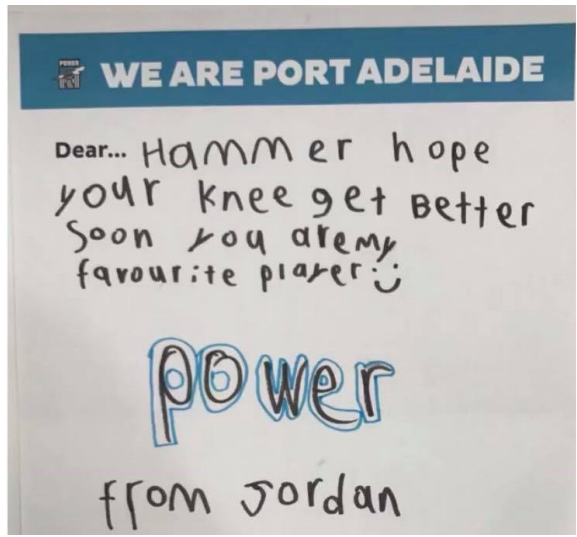 POWER
WE ARE PORT ADELAIDE
Dear... Hammer hope
your knee get Better
Soon you are my
favourite player
power
from Jordan